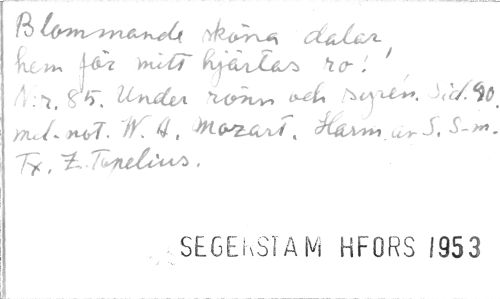 Blommande sköna dalar,
hem för mitt hjärtas ro!
N:r. 85. Under rönn och syrén. Sid. 90.
mel. not. W. A. Mozart. Harm. av S. S-m.
Tx. Z. Topelius.
SEGERSTAM HFORS 1953